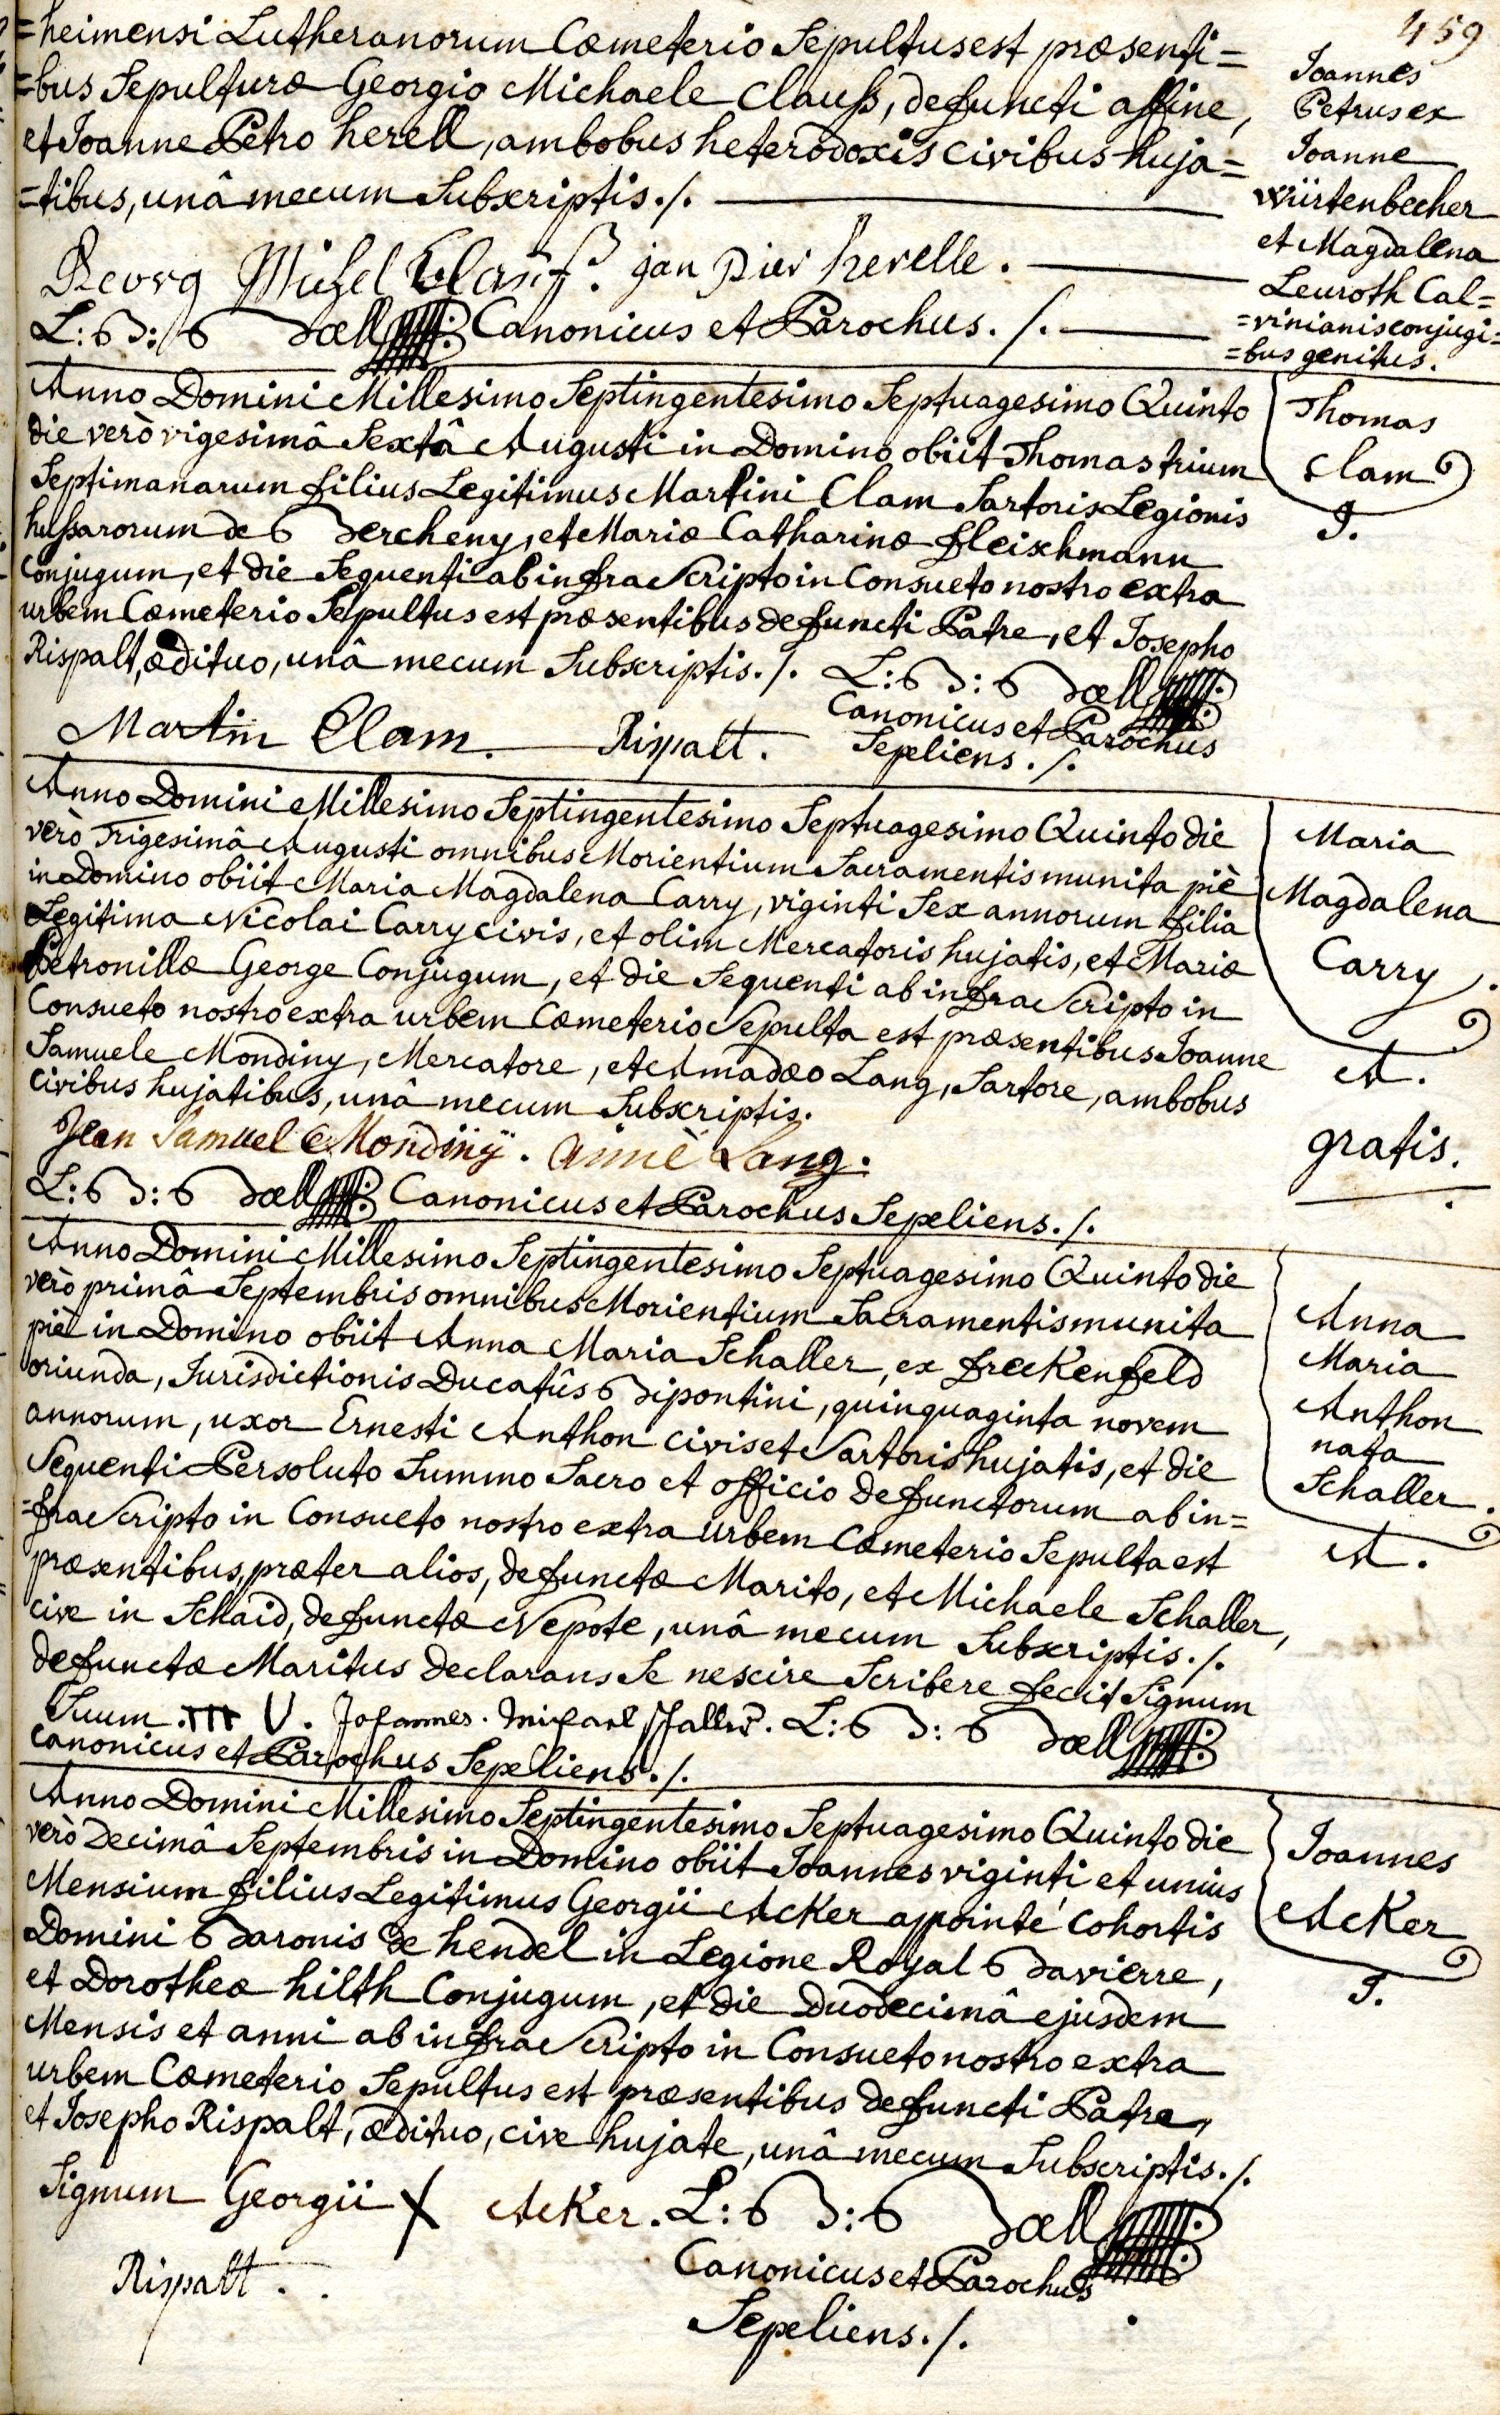 459
=heimensi Lutheranorum Cæmeterio Sepultus est præsenti=
=bus Sepulturæ Georgio Michaele Clauß, defuncti affine,
et Joanne Petro herell, ambobus heterodoxis civibus huja=
=tibus, unâ mecum Subscriptis ./.
Georg Michel Clauß. jan pier herelle.
L: B: Bœll Canonicus et Parochus ./.
Joannes
Petrus ex
Joanne
Würtenbecher
et Magdalena
Leuroth Cal=
=vinianis conjugi=
=bus genitus.
Anno Domini Millesimo Septingentesimo Septuagesimo Quinto
die verò vigesimâ Sextâ Augusti in Domino obiit Thomas trium
Septimanarum filius Legitimus Martini Clam Sartoris Legionis
hussarorum de Bercheny, et Mariæ Catharinæ fleischmann
Conjugum, et die Sequenti ab infra Scripto in Consueto nostro extra
urbem Cæmeterio Sepultus est præsentibus defuncti Patre, et Josepho
Rispalt, ædituo, unâ mecum Subscriptis ./. L: B: Bœll
Canonicus et Parochus
Martin Clam. Rispalt. Sepeliens ./.
Thomas
Clam
J.
Anno Domini Millesimo Septingentesimo Septuagesimo Quinto die
verò Trigesimâ Augusti omnibus Morientium Sacramentis munita piè
in Domino obiit Maria Magdalena Carry, viginti Sex annorum filia
Legitima Nicolai Carry civis, et olim Mercatoris hujatis, et Mariæ
Petronillæ George Conjugum, et die Sequenti ab infra Scripto in
Consueto nostro extra urbem Cæmeterio Sepulta est præsentibus Joanne
Samuele Mondiny, Mercatore, et Amadæo Lang, Sartore, ambobus
civibus hujatibus, unâ mecum Subscriptis.
Jean Samuel Mondiny. aimé Lang.
L: B: Bœll Canonicus et Parochus Sepeliens ./.
Maria
Magdalena
Carry.
A.
gratis.
Anno Domini Millesimo Septingentesimo Septuagesimo Quinto die
verò primâ Septembris omnibus Morientium Sacramentis munita
piè in Domino obiit Anna Maria Schaller, ex freckenfeld
oriunda, Jurisdictionis Ducatûs Bipontini, quinquaginta novem
annorum, uxor Ernesti Anthon civis et Sartoris hujatis, et die
Sequenti Persoluto Summo Sacro et officio defunctorum ab in=
=fra Scripto in Consueto nostro extra urbem Cæmeterio Sepulta est
præsentibus, præter alios, defunctæ Marito, et Michaele Schaller,
cive in Schaid, defunctæ Nepote, unâ mecum Subscriptis ./.
defunctæ Maritus declarans Se nescire Scribere fecit Signum
Suum. Johannes. Michael Schaller. L: B: Bœll
Canonicus et Parochus Sepeliens ./.
Anna
Maria
Anthon
nata
Schaller.
A.
Anno Domini Millesimo Septingentesimo Septuagesimo Quinto die
verò Decimâ Septembris in Domino obiit Joannes viginti et unius
Mensium filius Legitimus Georgii Acker appointé Cohortis
Domini Baronis de hendel in Legione Royal Bavierre,
et Dorotheæ hilth Conjugum, et die Duodecimâ ejusdem
Mensis et anni ab infra Scripto in Consueto nostro extra
urbem Cæmeterio Sepultus est præsentibus defuncti Patre,
et Josepho Rispalt, ædituo, cive hujate, unâ mecum Subscriptis ./.
Signum Georgii X Acker. L: B: Bœll
Canonicus et Parochus
Rispalt. Sepeliens ./.
Joannes
Acker
J.